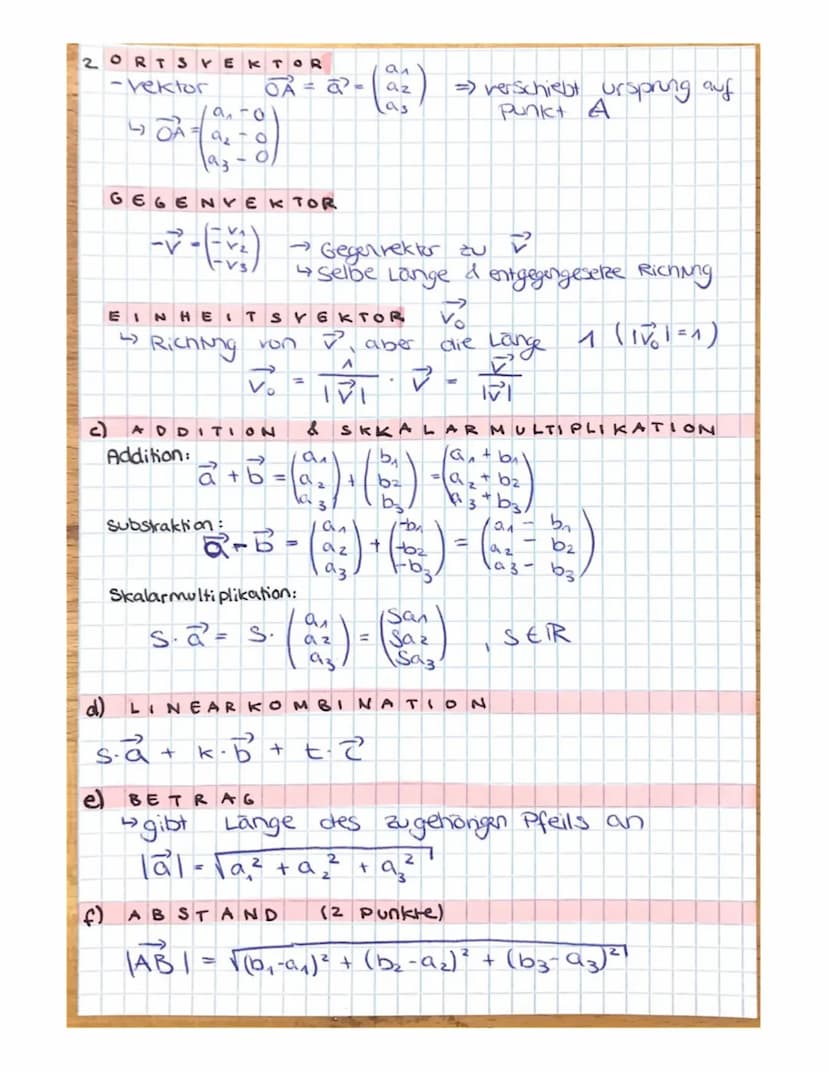 2 ORTSVEKTOR
-vektor $\overrightarrow{OA} = \vec{a} = \begin{pmatrix} a_1 \\ a_2 \\ a_3 \end{pmatrix}$ ⇒ verschiebt ursprung auf
punkt A
↳ $\overrightarrow{OA} = \begin{pmatrix} a_1 - 0 \\ a_2 - 0 \\ a_3 - 0 \end{pmatrix}$
GEGENVEKTOR
$-\vec{v} = \begin{pmatrix} -v_1 \\ -v_2 \\ -v_3 \end{pmatrix}$ → Gegenvektor zu $\vec{v}$
↳ Selbe Länge & entgegengesetze Richtung
EINHEITSVEKTOR $\vec{v_0}$
↳ Richtung von $\vec{v}$, aber die Länge 1 ($|\vec{v_0}| = 1$)
$\vec{v_0} = \frac{1}{|\vec{v}|} \cdot \vec{v} = \frac{\vec{v}}{|\vec{v}|}$
c) ADDITION & SKKALARMULTIPLIKATION
Addition:
$\vec{a} + \vec{b} = \begin{pmatrix} a_1 \\ a_2 \\ a_3 \end{pmatrix} + \begin{pmatrix} b_1 \\ b_2 \\ b_3 \end{pmatrix} = \begin{pmatrix} a_1 + b_1 \\ a_2 + b_2 \\ a_3 + b_3 \end{pmatrix}$
Substraktion:
$\vec{a} - \vec{b} = \begin{pmatrix} a_1 \\ a_2 \\ a_3 \end{pmatrix} + \begin{pmatrix} -b_1 \\ -b_2 \\ -b_3 \end{pmatrix} = \begin{pmatrix} a_1 - b_1 \\ a_2 - b_2 \\ a_3 - b_3 \end{pmatrix}$
Skalarmultiplikation:
$s \cdot \vec{a} = s \cdot \begin{pmatrix} a_1 \\ a_2 \\ a_3 \end{pmatrix} = \begin{pmatrix} sa_1 \\ sa_2 \\ sa_3 \end{pmatrix}$, $s \in \mathbb{R}$
d) LINEARKOMBINATION
$s \cdot \vec{a} + k \cdot \vec{b} + t \cdot \vec{c}$
e) BETRAG
↳ gibt Länge des zugehörigen Pfeils an
$|\vec{a}| = \sqrt{a_1^2 + a_2^2 + a_3^2}$
f) ABSTAND (2 Punkte)
$|\overrightarrow{AB}| = \sqrt{(b_1 - a_1)^2 + (b_2 - a_2)^2 + (b_3 - a_3)^2}$